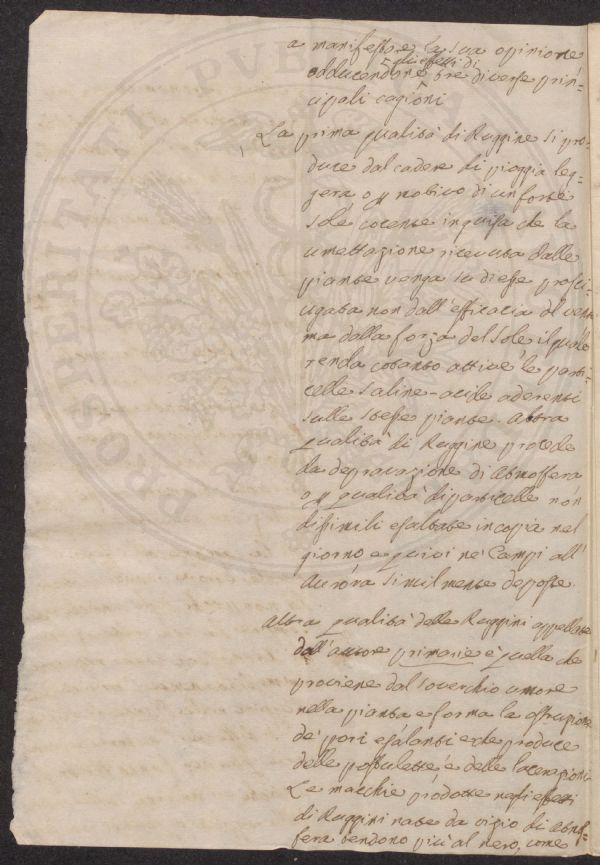 a manifestare la sua opinione
gli effetti di
adducendone tre diverse prin-
cipali cagioni
La prima qualità di Ruggine si pro-
duce dal cadere di pioggia leg-
gera o p motivo di un forte
Sole cocente in guisa che la
umettazione ricevuta dalle
piante venga su di esse prosci-
ugata non dall'efficacia del vento
ma dalla forza del Sole il quale
renda cotanto attive le parti-
celle saline-acide aderenti
sulle stesse piante. Altra
qualità di Ruggine procede
da depravazione di Atmosfera
o p qualità di particelle non
dissimili esaltate in copia nel
giorno e quivi ne' Campi all'
Aurora similmente deposte.
Altra qualità delle Ruggini appellate
dall'autore primarie è quella che
proviene dal soverchio umore
nella pianta e forma la ostruzione
de' pori esalanti e che produce
delle postulette e delle lacerazioni
Le macchie prodotte negli effetti
di Ruggini nate da vizio di Atmos-
fera tendono più al nero, come
PROSPERITATI PUBLICA